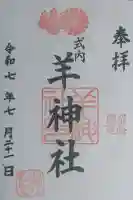 奉拝
式内
羊神社
令和七年七月二十一日